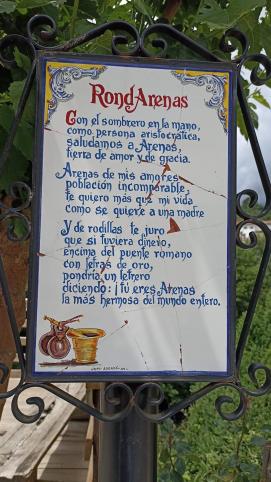 RondArenas
Con el sombrero en la mano,
como persona aristocrática,
saludamos a Arenas,
tierra de amor y de gracia.
Arenas de mis amores
población incomparable,
te quiero más que mi vida
como se quiere a una madre
Y de rodillas te juro
que si tuviera dinero,
encima del puente romano
con letras de oro,
pondría un letrero
diciendo: ¡tú eres Arenas
la más hermosa del mundo entero.